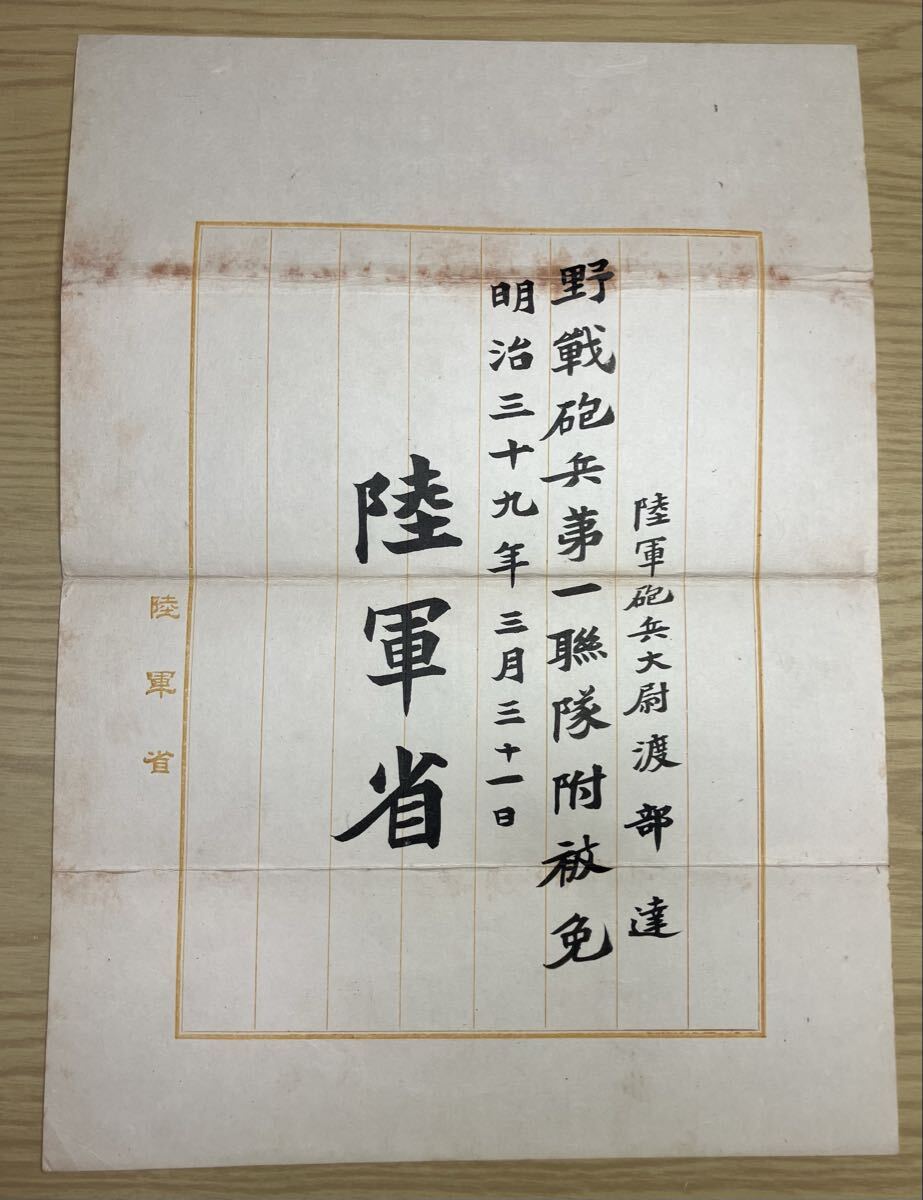 陸軍砲兵大尉渡部達
野戰砲兵第一聯隊附被免
明治三十九年三月三十一日
陸軍省
陸軍省